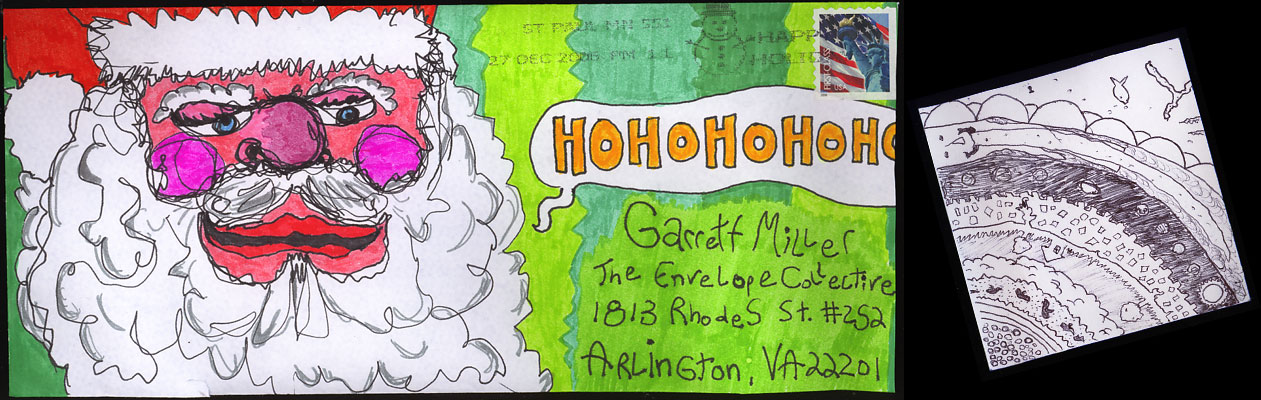 ST PAUL MN 551
27 DEC 2006 PM 11
HAPP
HOLID
FIRST-CLASS
USA
HOHOHOHOHO
Garrett Miller
The Envelope Collective
1813 Rhodes St. #252
Arlington, VA 22201